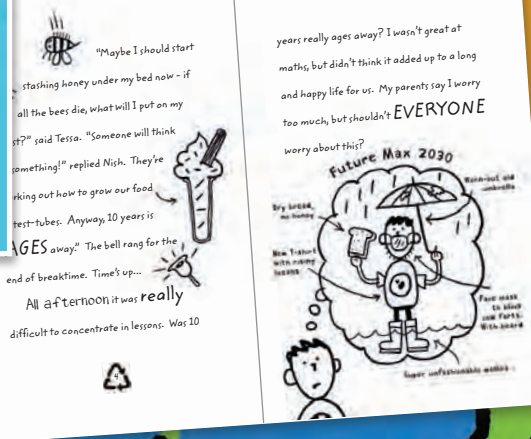 "Maybe I should start
stashing honey under my bed now - if
all the bees die, what will I put on my
said Tessa. "Someone will think
something!" replied Nish. They're
out how to grow our food
test-tubes. Anyway, 10 years is
AGES away." The bell rang for the
end of breaktime. Time's up...
All afternoon it was really
difficult to concentrate in lessons. Was 10
4
years really ages away? I wasn't great at
maths, but didn't think it added up to a long
and happy life for us. My parents say I worry
too much, but shouldn't EVERYONE
worry about this?
Future Max 2030
Worn-out old
umbrella
Dry bread,
no honey
New T-shirt
with rising
oceans
Face mask
to block
cow farts.
With beard
Super unfashionable wellies